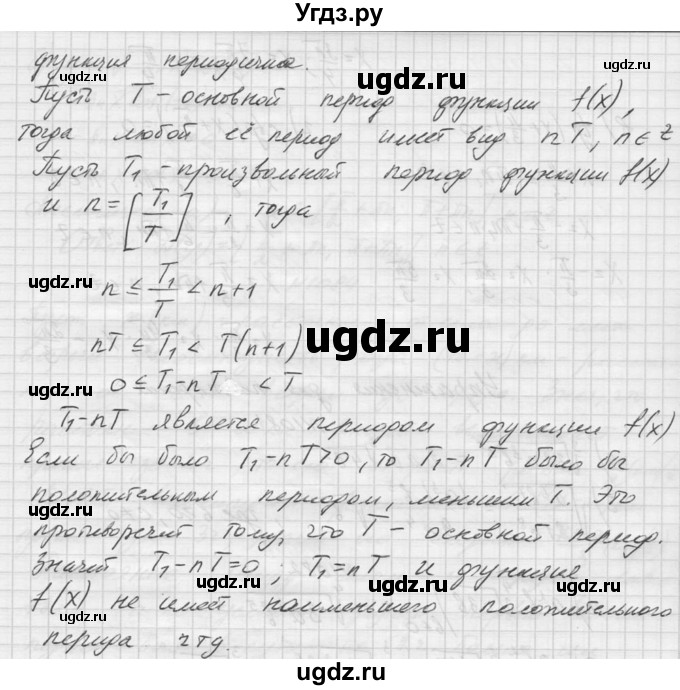 Угдз.ру
функция периодична.
Пусть T – основной период функции f(x),
тогда любой её период имеет вид nT, n∈Z
Пусть T₁ – произвольный период функции f(x)
и n = [T₁/T], тогда
n ≤ T₁/T < n+1
nT ≤ T₁ < T(n+1)
0 ≤ T₁-nT < T
T₁-nT является периодом функции f(x)
Если бы было T₁-nT>0, то T₁-nT было бы
положительным периодом, меньшим T. Это
противоречит тому, что T – основной период.
Значит T₁-nT=0; T₁=nT и функция
f(x) не имеет наименьшего положительного
периода чтд.
ugdz.ru
ugdz.ru
ugdz.ru
ugdz.ru
ugdz.ru
ugdz.ru
ugdz.ru
ugdz.ru
ugdz.ru
ugdz.ru
ugdz.ru
ugdz.ru
ugdz.ru